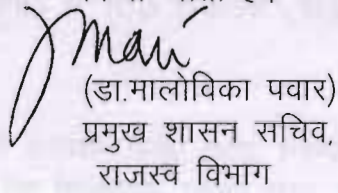 (डा.मालोविका पवार)
प्रमुख शासन सचिव,
राजस्व विभाग